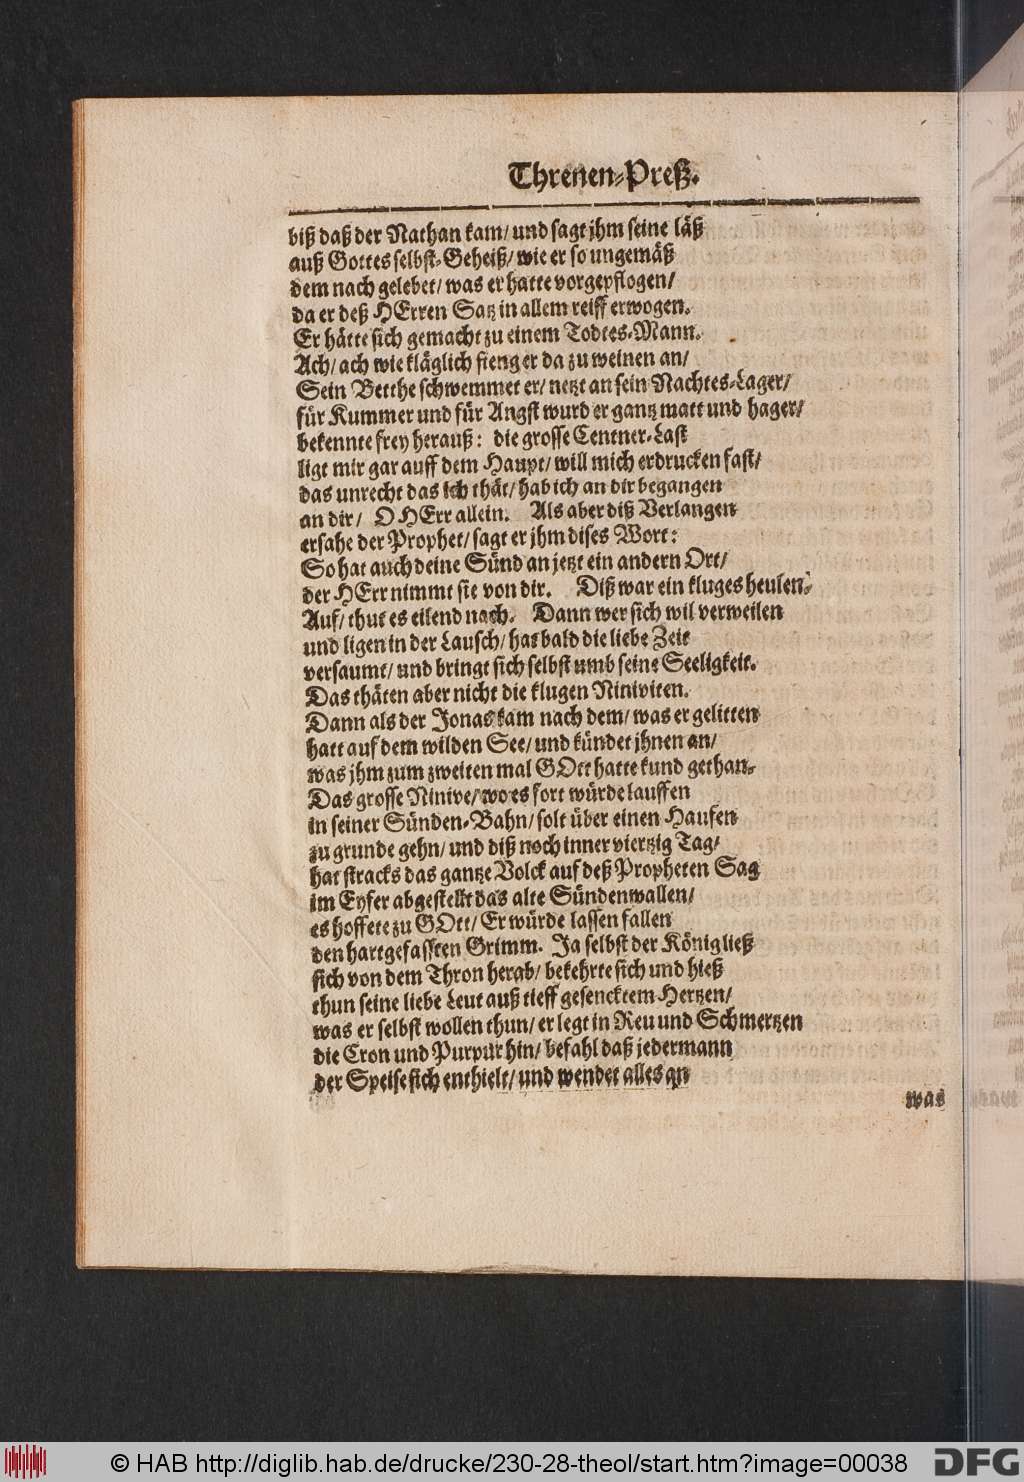 Threnen-Preß.
biß daß der Nathan kam/ und sagt jhm seine läß
auß Gottes selbst-Geheiß/ wie er so ungemäß
dem nach gelebet/ was er hatte vorgepflogen/
da er deß HErren Satz in allem reiff erwogen.
Er hätte sich gemacht zu einem Todtes-Mann.
Ach/ ach wie kläglich fieng er da zu weinen an/
Sein Betthe schwemmet er/ netzt an sein Nachtes-Lager/
für Kummer und für Angst wurd er gantz matt und hager/
bekennte frey herauß: die grosse Centner-Last
ligt mir gar auff dem Haupt/ will mich erdrucken fast/
das unrecht das ich thät/ hab ich an dir begangen
an dir/ O HErr allein. Als aber diß Verlangen
ersahe der Prophet/ sagt er jhm dises Wort:
So hat auch deine Sünd an jetzt ein andern Ort/
der HErr nimmt sie von dir. Diß war ein kluges heulen.
Auf/ thut es eilend nach. Dann wer sich wil verweilen
und ligen in der Lausch/ hat bald die liebe Zeit
versaumt/ und bringt sich selbst umb seine Seeligkeit.
Das thäten aber nicht die klugen Niniviten.
Dann als der Jonas kam nach dem/ was er gelitten
hatt auf dem wilden See/ und kündet jhnen an/
was jhm zum zweiten mal GOtt hatte kund gethan.
Das grosse Ninive/ wo es fort würde lauffen
in seiner Sünden-Bahn/ solt über einen Haufen
zu grunde gehn/ und diß noch inner viertzig Tag/
hat stracks das gantze Volck auf deß Propheten Sag
im Eyfer abgestellt das alte Sündenwallen/
es hoffete zu GOtt/ Er würde lassen fallen
den hartgefassten Grimm. Ja selbst der König ließ
sich von dem Thron herab/ bekehrte sich und hieß
thun seine liebe Leut auß tieff gesencktem Hertzen/
was er selbst wollen thun/ er legt in Reu und Schmertzen
die Cron und Purpur hin/ befahl daß jedermann
der Speise sich enthielt/ und wendet alles an
was
© HAB http://diglib.hab.de/drucke/230-28-theol/start.htm?image=00038
DFG